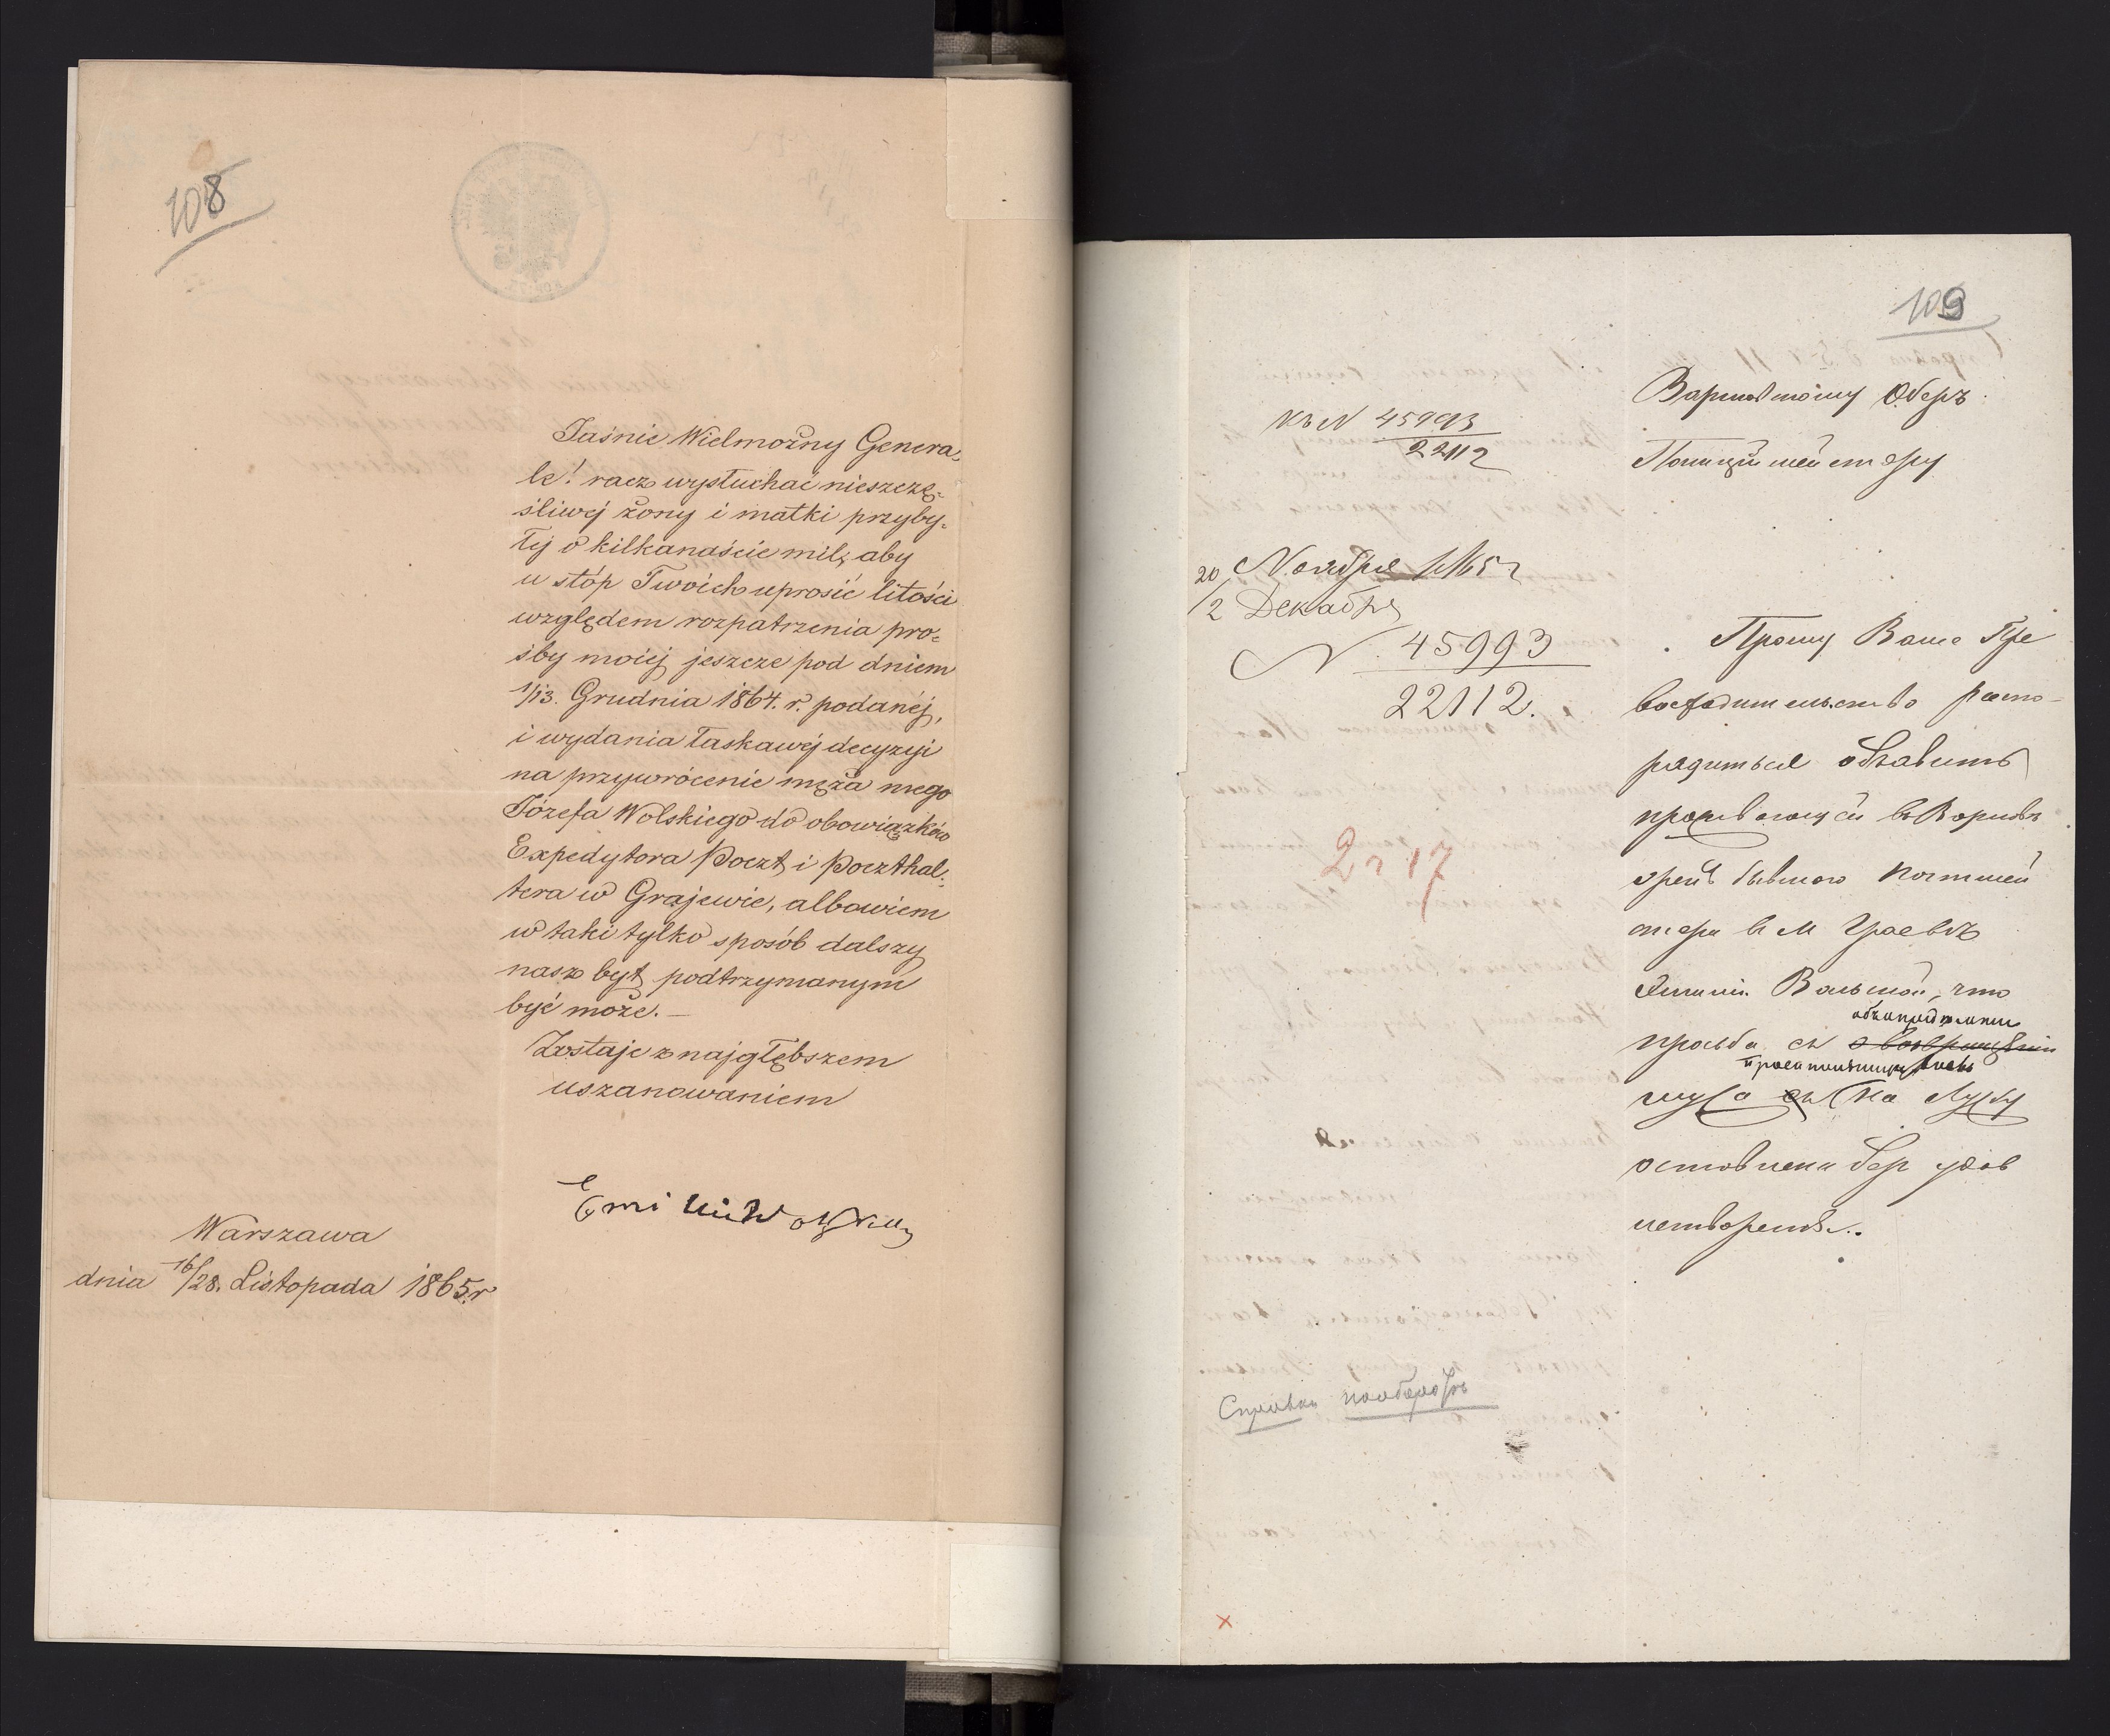 108
Jaśnie Wielmożny Genera-
le! racz wysłuchać nieszczę-
śliwej żony i matki przyby-
łej o kilkanaście mil, aby
u stóp Twoich uprosić litości
względem rozpatrzenia pro-
śby moiej jeszcze pod dniem
1/13. Grudnia 1864. r. podanéj,
i wydania łaskawéj decyzyi
na przywrócenie męża mego
Józefa Wolskiego do obowiązków
Expedytora Poczt i Poczthal-
tera w Grajewie, albowiem
w taki tylko sposób dalszy
nasz byt podtrzymanym
być może. —
Zostaje z najgłębszem
uszanowaniem
Emilia Wolska
Warszawa
dnia 16/28. Listopada 1865. r
109
Къ N 45993
22112
Варшавскому Оберъ
Полиціймейстеру
20 Ноября 1865 г
/2 Декабря
N. 45993
22112.
Прошу Ваше Пре
восходительство распо-
рядиться объявить
проживающей въ Варшавѣ
женѣ бывшаго почтмей
стера в м Граево
Эмиліи Вольской, что
просьба ея
мужа на службу
оставлена без удов
летворенія.
2 г 17
Справка наоборотѣ